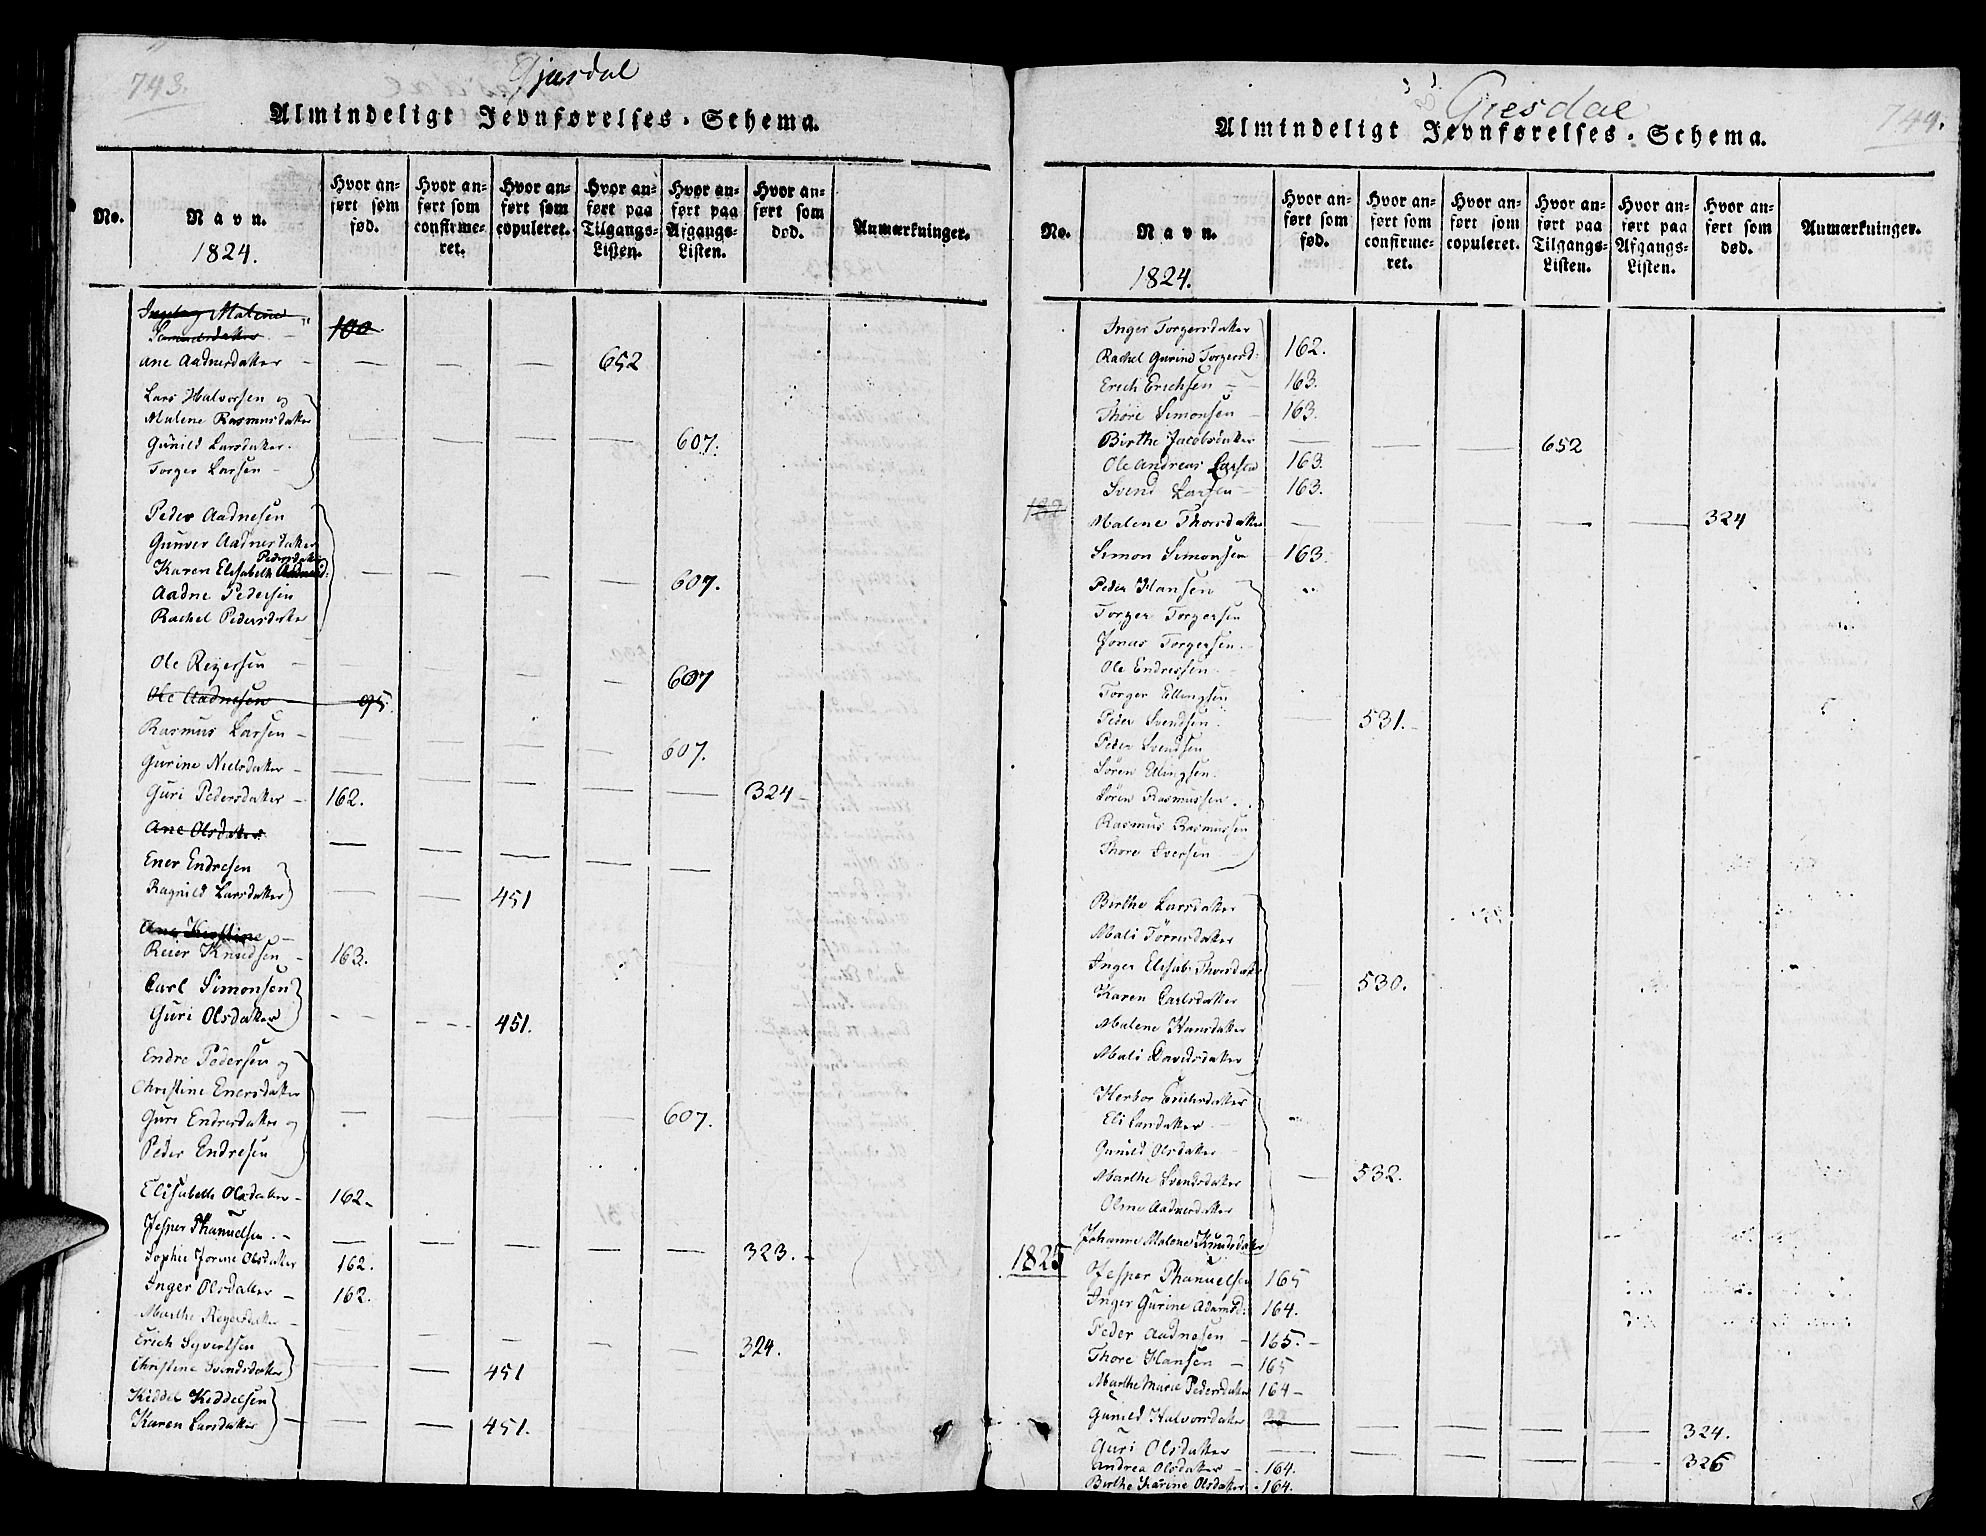 743.
Gjasdal
Almindeligt Jevnførelses-Schema.
No.
Navn.
1824.
Hvor anført som fød.
Hvor anført som confirmeret.
Hvor anført som copuleret.
Hvor anført paa Tilgangs-Listen.
Hvor anført paa Afgangs-Listen.
Hvor anført som død.
Anmærkninger.
Malene
100
Ane Aadnesdatter - — — — 652
Lars Halvorsen og
Malene Rasmusdatter
Gunild Larsdatter. — — — — 607.
Torger Larsen -
Peder Aadnesen
Gunver Aadnesdatter
Pedersdatter
Karen Elisabeth — — — — 607.
Aadne Pedersen
Rachel Pedersdatter
Ole Reyersen — — — — 607
Ole Aadnesen 95.
Rasmus Larsen — — — — — 607.
Gurine Nielsdatter —
Guri Pedersdatter — 162. — — — — 324 —
Ane Olsdatter
Ener Endresen
Ragnild Larsdatter — — 451
Ane Kirstine
Reier Knudsen - 163.
Carl Simonsen
Guri Olsdatter - - 451.
Endre Pedersen og
Christine Enersdatter
Guri Endresdatter og — 607.
Peder Endresen
Elisabeth Olsdatter - 162-
Jesper Phanuelsen . — — — — — — 323. -
Sophie Jorine Olsdatter 162.
Inger Olsdatter — 162.
Marthe Reyersdatter — — — — — — 324.
Erich Syvertsen
Christine Svendsdatter — — 451
Kiddel Kiddelsen
Karen Larsdatter — — 451.
744.
Giesdal
Almindeligt Jevnførelses-Schema.
No.
Navn.
1824.
Hvor anført som fød.
Hvor anført som confirmeret.
Hvor anført som copuleret.
Hvor anført paa Tilgangs-Listen.
Hvor anført paa Afgangs-Listen.
Hvor anført som død.
Anmærkninger.
Inger Torgersdatter
Rachel Gurine Torgersd: 162.
Erich Erichsen — 163.
Thore Simonsen — 163.
Birthe Jacobsdatter — — — 652
Ole Andreas Larsen 163.
Svend Larsen — 163.
Malene Thorsdatter — — — — — 324
Simon Simonsen 163.
Peder Hansen
Torger Torgersen
Jonas Torgersen.
Ole Endresen.
Torger Ellingsen
Peder Svendsen. — 531.
Peder Svendsen
Søren Ellingsen.
Søren Rasmussen.
Rasmus Rasmussen
Thore Iversen
Birthe Larsdatter
Mali Tørresdatter
Inger Elisab: Thorsdatter
Karen Carlsdatter — 530.
Malene Hansdatter
Mali Davidsdatter
Herbor Erichsdatter
Eli Larsdatter.
Gunild Olsdatter
Marthe Svendsdatter — 532.
Olene Aadnesdatter
Johanne Malene Knudsdatter
1825
Jesper Phanuelsen 165
Inger Gurine Adamsd: 164.
Peder Aadnesen — 165. -
Thore Hansen — 165
Marthe Marie Pedersdatter 164 —
Gunild Halvorsdatter — — — — 324.
Guri Olsdatter — — — — — 326
Andrea Olsdatter — . 164.
Birthe Karine Olsdatter . 164.